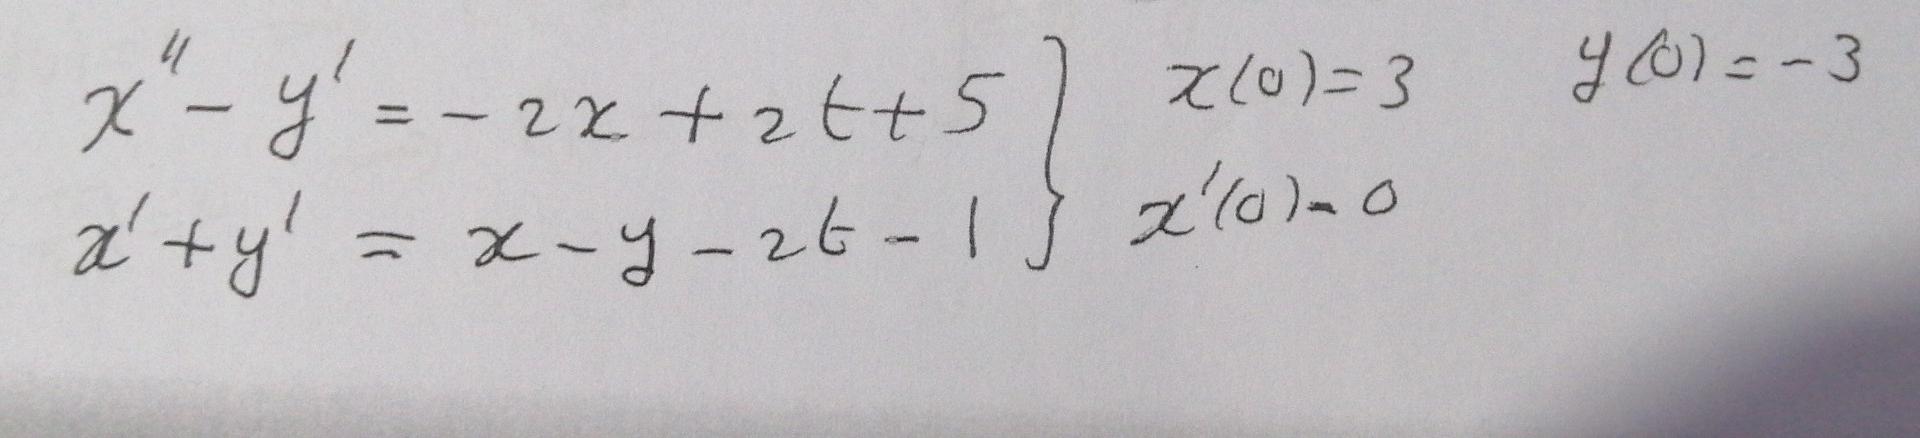 x'' - y' = -2x + 2t + 5 } x(0) = 3 y(0) = -3
x' + y' = x - y - 2t - 1 } x'(0) - 0